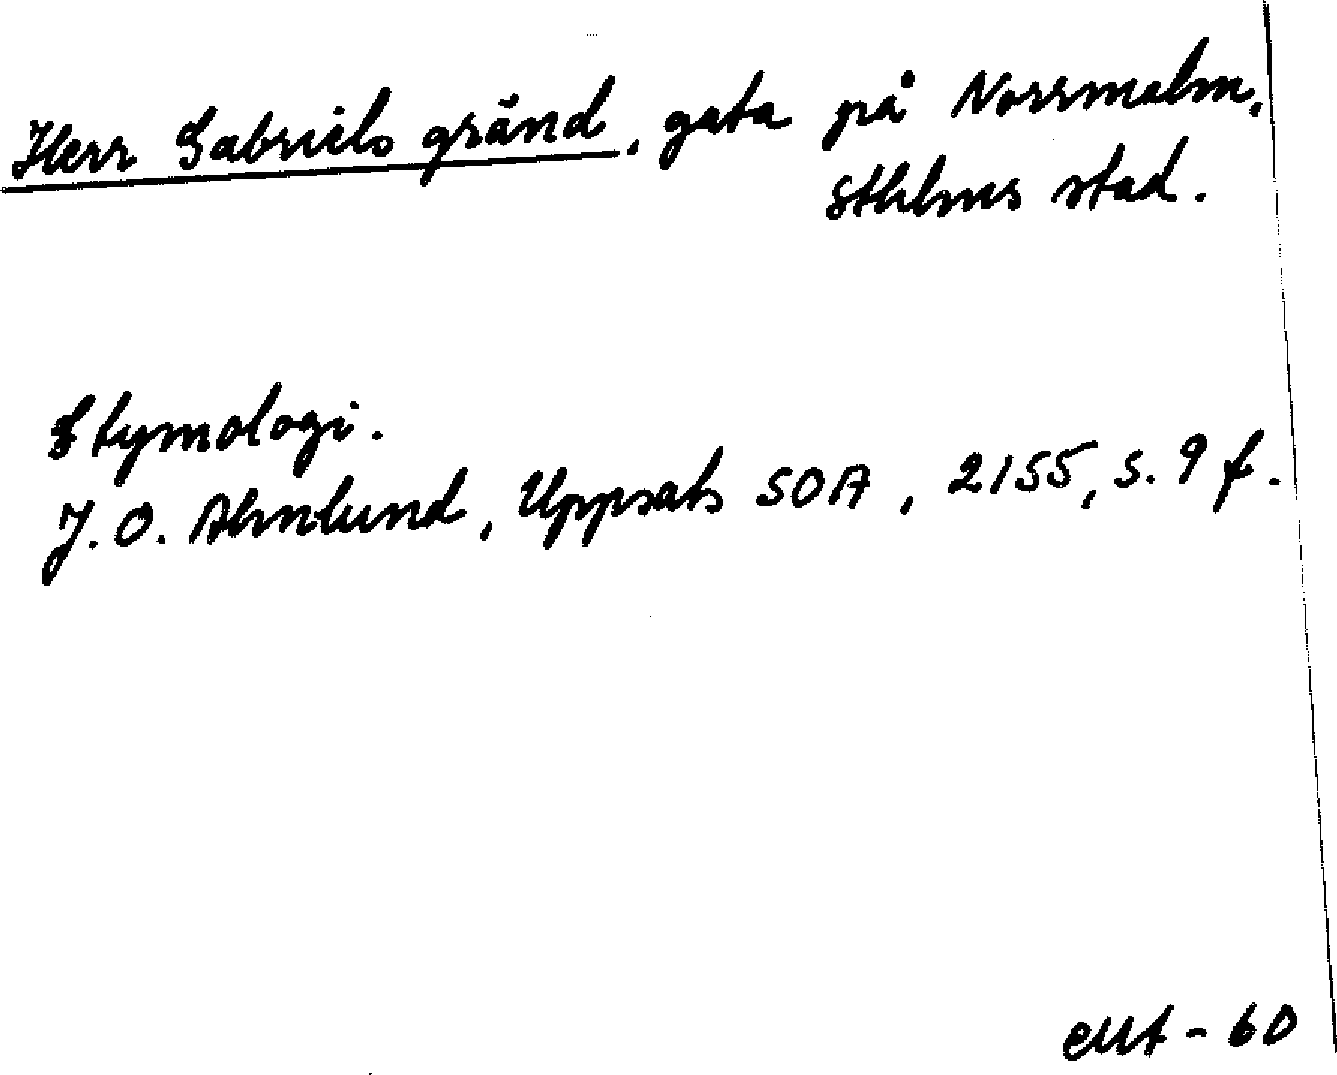 Herr Gabriels gränd, gata på Norrmalm,
Sthlms stad.
Etymologi.
J. O. Almlund, Uppsats SOA, 2155, s. 9 f.
EMt-60